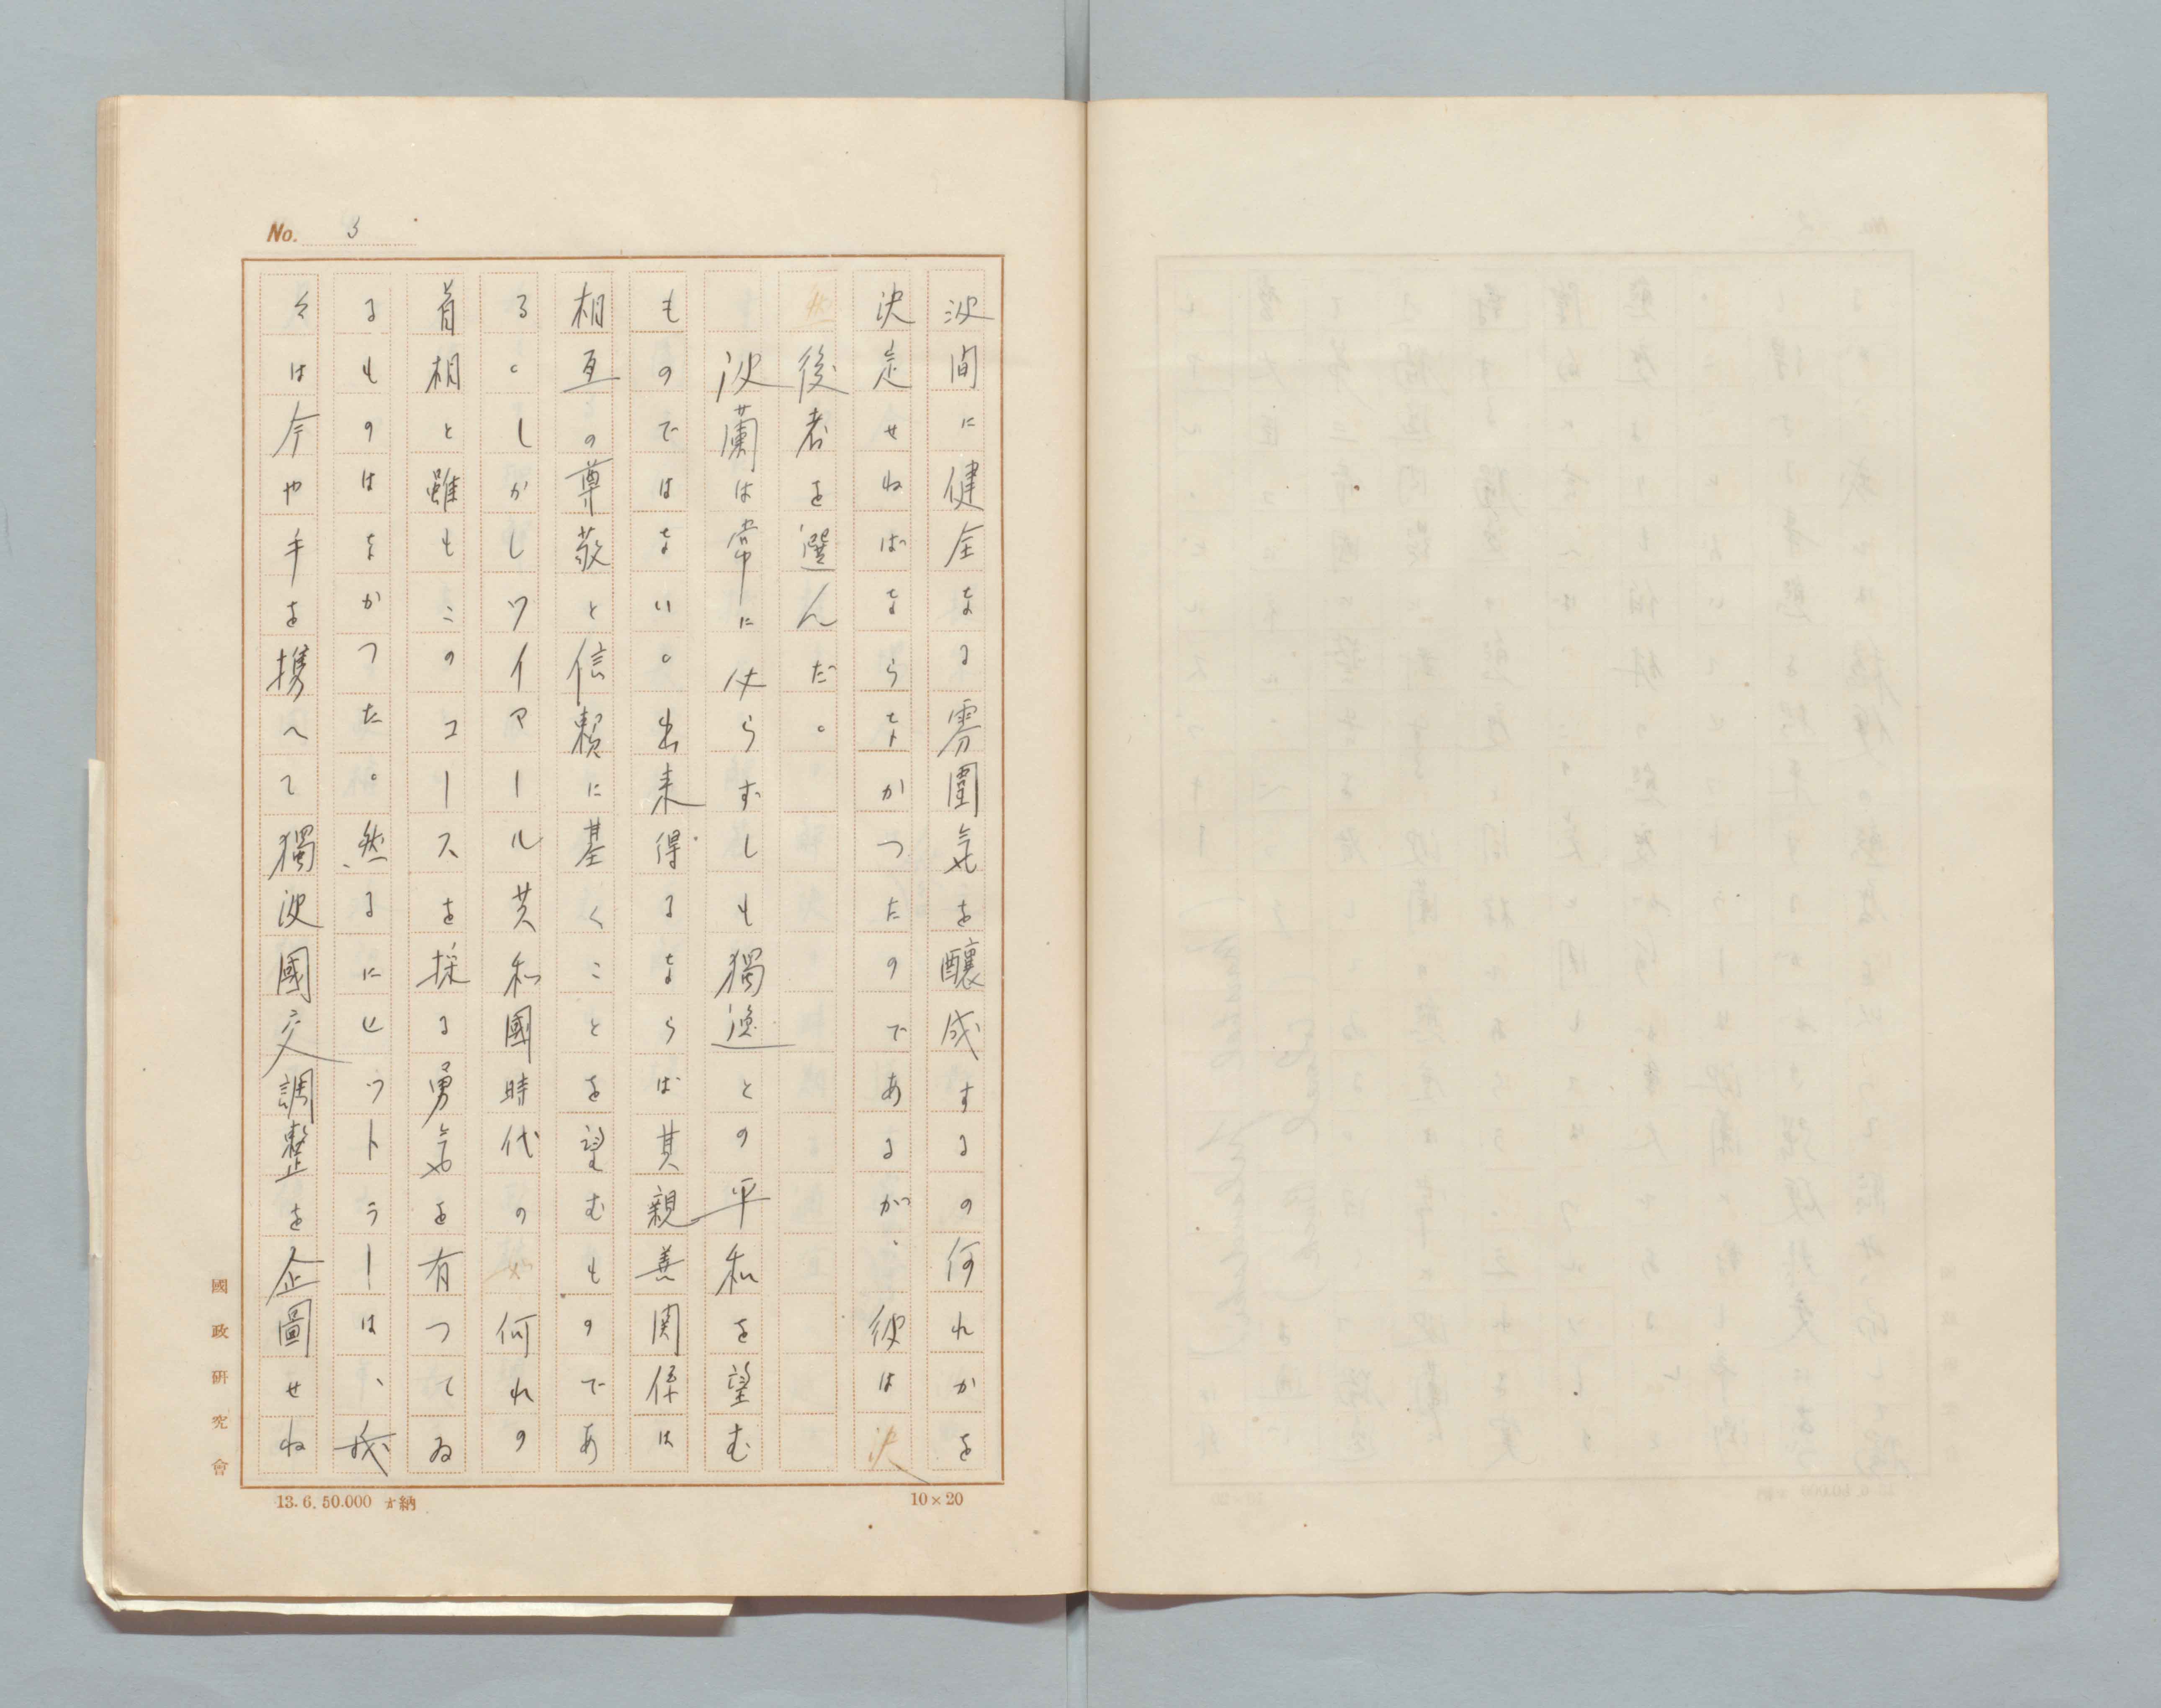 No. 3
波間に健全なる雰囲気を醸成するの何れかを
決定せねばならなかつたのであるが、彼は決
然後者を選んだ。
波蘭は常に必らずしも獨逸との平和を望む
ものではない。出来得るならば其親善関係は
相互の尊敬と信頼に基くことを望むものであ
る。しかしワイマール共和國時代の如何れの
首相と雖もこのコースを採る勇気を有つてゐ
るものはなかつた。然るにヒットラーは、我
々は今や手を携へて獨波國交調整を企圖せね
國政研究會
13.6.50.000 納
10×20